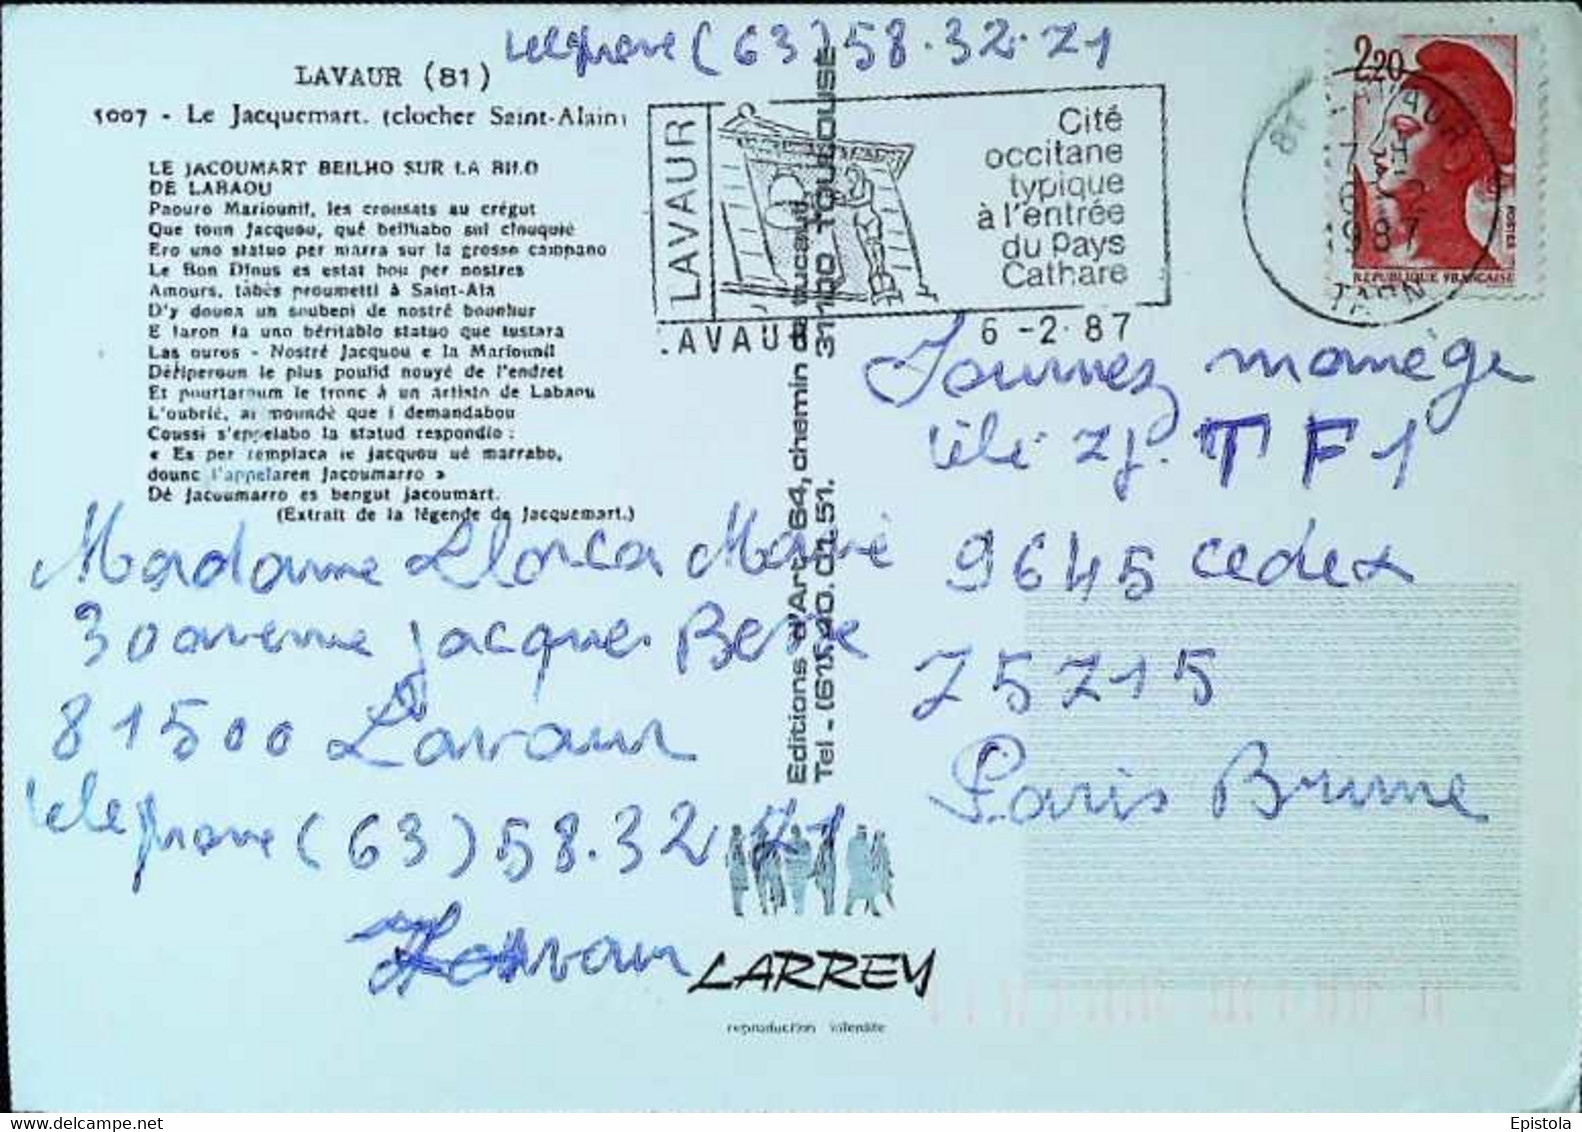 telephone (63) 58.32.71
LAVAUR (81)
5007 - Le Jacquemart. (clocher Saint-Alain)
LE JACOUMART BEILHO SUR LA BILO
DE LABAOU
Paouro Mariounil, les crousats au crégut
Que toun Jacquou, qué beilhabo sul clouquié
Ero uno statuo per marra sur la grosso campano
Le Bon Dious es estat bou per nostres
Amours, tabés proumetti à Saint-Ala
D'y douna un soubeni de nostré bounhur
E faron fa uno béritablo statuo que tustara
Las ouros - Nostré Jacquou e la Mariounil
Désiperoun le plus poulid nouyé de l'endret
Et pourtaroum le tronc à un artisto de Labaou
L'oubrié, al moundé que i demandabou
Coussi s'eppelabo la statud respondio :
« Es per remplaca le Jacquou ué marrabo,
dounc l'appelaren Jacoumarro »
Dé Jacoumarro es bengut Jacoumart.
(Extrait de la légende de Jacquemart.)
LAVAUR
Cité
occitane
typique
à l'entrée
du Pays
Cathare
.AVAUR
6 -2. 87
81 LAVAUR
1987
TARN
2,20
POSTES
REPUBLIQUE FRANÇAISE
Editions d'Art 64, chemin de Tucaut, 31100 TOULOUSE
Tel - (61) 40.01.51.
Madame Llorca Marie
30 avenue Jacques Besse
81500 Lavaur
telephone (63) 58.32.71
Lavaur
Tournez manège
télé TF1
9645 cedex
75715
Paris Brune
LARREY
reproduction interdite
Delcampe.net
Epistola